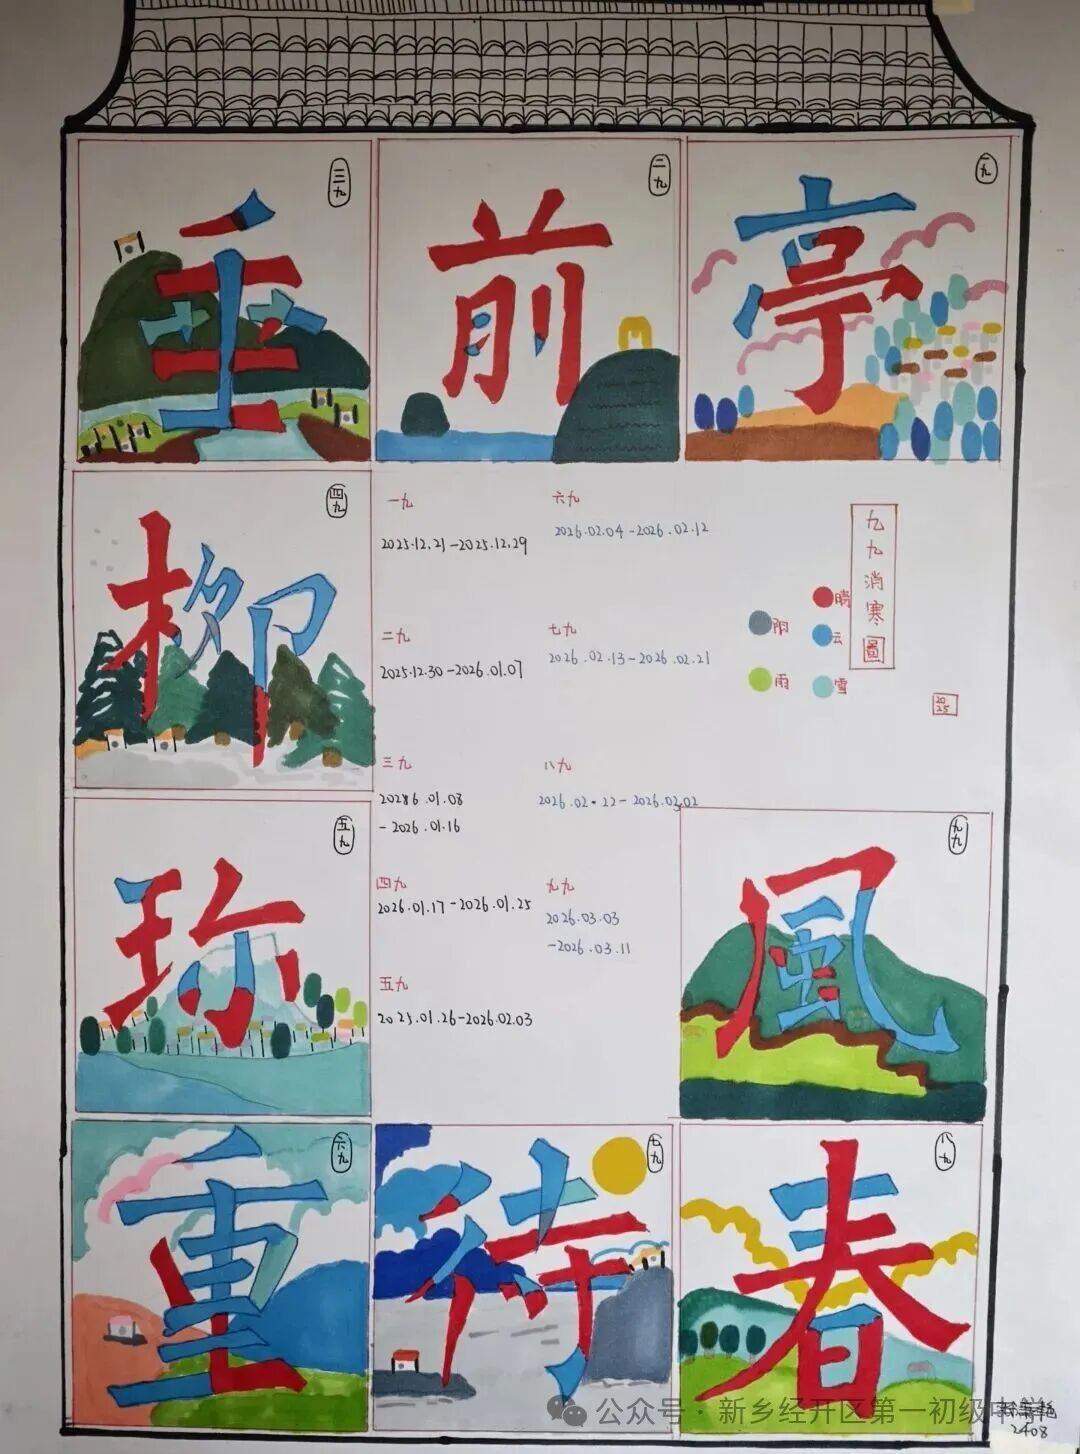 三九
垂
二九
前
一九
亭
四九
柳
一九
2025.12.21-2025.12.29
二九
2025.12.30-2026.01.07
三九
2026.01.08
-2026.01.16
四九
2026.01.17-2026.01.25
五九
2025.01.26-2026.02.03
六九
2026.02.04-2026.02.12
七九
2026.02.13-2026.02.21
八九
2026.02.22-2026.03.02
九九
2026.03.03
-2026.03.11
九九消寒圖
晴
阴
云
雨
雪
2025
五九
珍
九九
風
六九
重
七九
待
八九
春
公众号·新乡经开区第一初级中学
2408